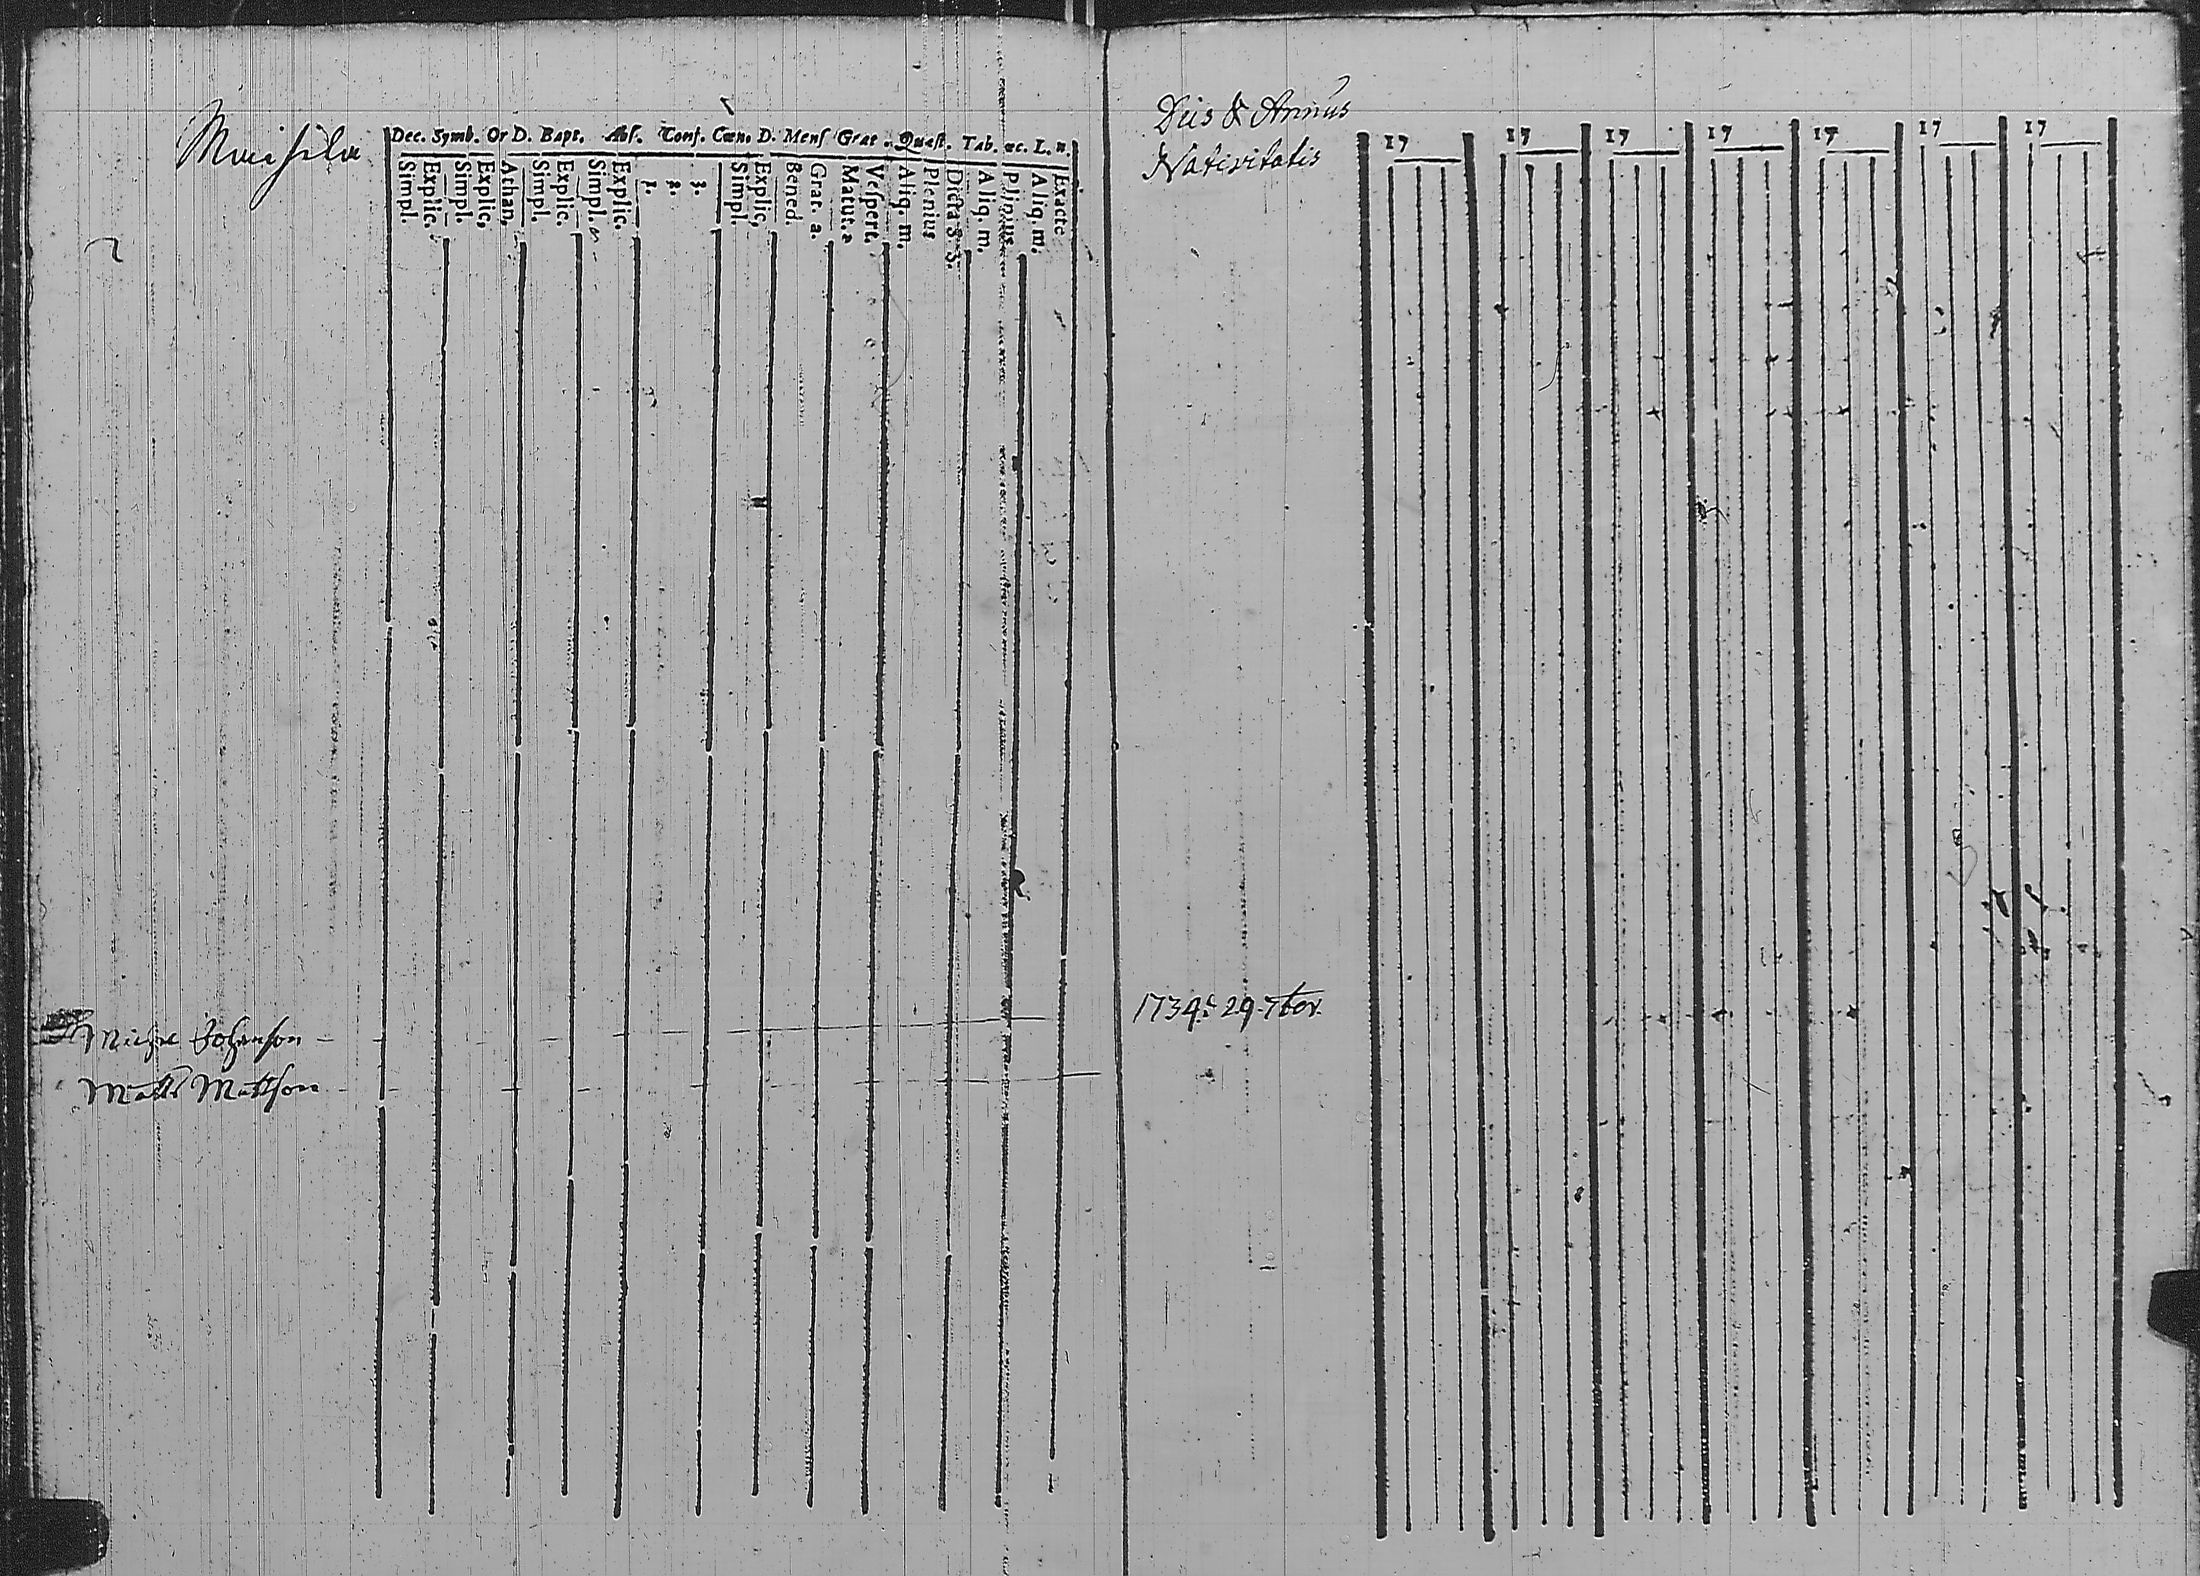 Dec. Symb. Or D. Bapt. Abs. Conf. Cœn. D. Mens Grat. Quæst. Tab. œc. L. n.
Simpl.
Explic.
Simpl.
Explic,
Athan,
Simpl.
Explic.
Simpl.
Explic.
1.
2.
3.
Simpl.
Explic,
Bened.
Grat. a.
Matut. a
Vespert.
Aliq. m.
Plenius
Dicta S. S.
Aliq. m.
Plinius
Aliq. m.
Exacte
Michel Johanson
Matts Mattson
Deis & Annus
Nativitatis
17 17 17 17 17 17 17
1734. 29. 7ber.